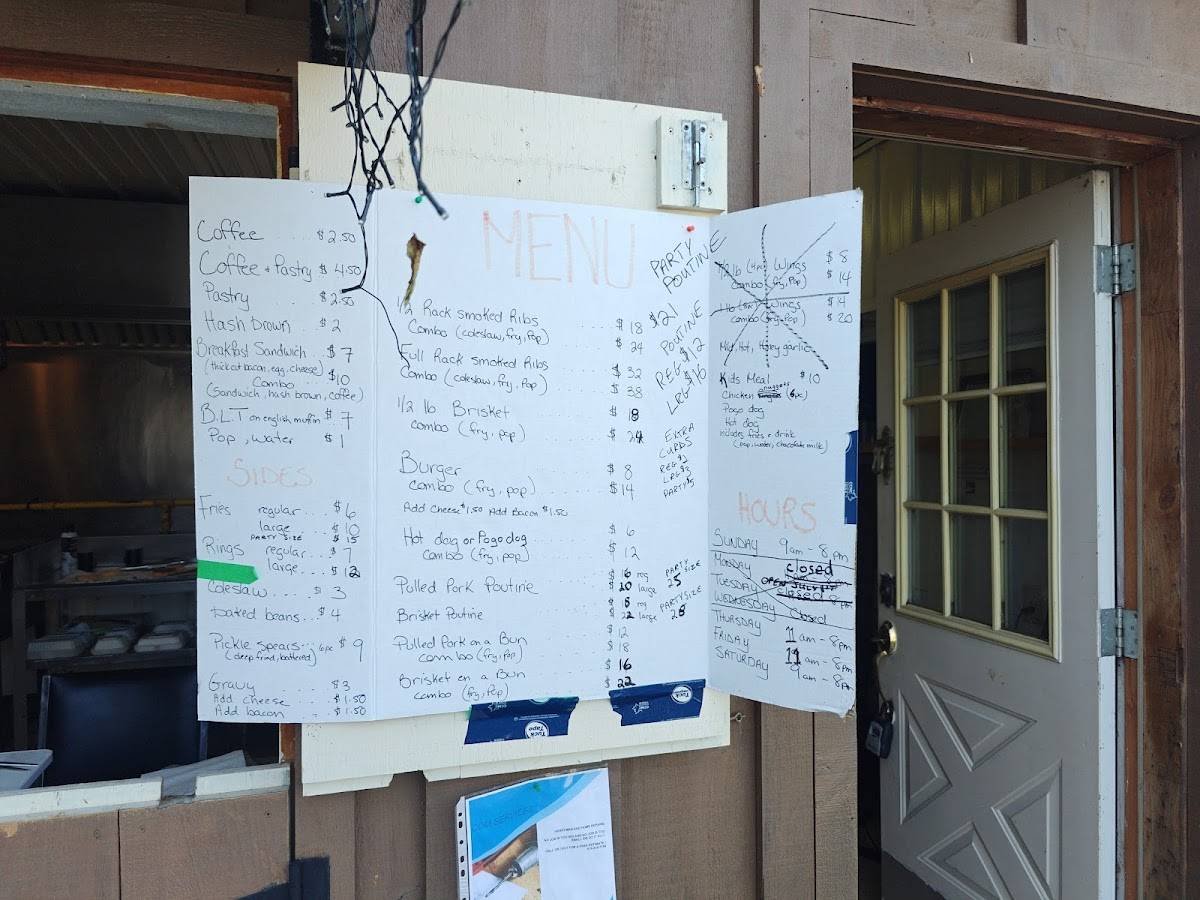 Coffee .... $2.50
Coffee + Pastry $4.50
Pastry $2.50
Hash brown .... $2
Breakfast Sandwich ... $7
(thick cut bacon, egg, cheese)
Combo ... $10
(Sandwich, hash brown, coffee)
B.L.T on english muffin $7
Pop, water $1
SIDES
Fries regular .... $6
large .... $10
PARTY SIZE $15
Rings regular ... $7
large ... $12
Coleslaw .... $3
baked beans... $4
Pickle spears... 6pc $9
(deep fried, battered)
Gravy $3
Add cheese ... $1.50
Add bacon ... $1.50
MENU
1/2 Rack smoked Ribs .... $18
Combo (coleslaw, fry, pop) .... $24
Full Rack smoked Ribs .... $32
Combo (coleslaw, fry, pop) .... $38
1/2 lb Brisket .... $18
combo (fry, pop) .... $24
Burger .... $8
combo (fry, pop) .... $14
Add Cheese $1.50 Add Bacon $1.50
Hot dog or Pogo dog .... $6
combo (fry, pop) .... $12
Pulled Pork Poutine $16 reg
$20 large
PARTY SIZE 25
Brisket Poutine $18 reg
$22 large
PARTY SIZE 28
Pulled Pork on a Bun $12
combo (fry, pop) .... $18
Brisket on a Bun $16
combo (fry, pop) .... $22
PARTY
POUTINE
$21
POUTINE
REG $12
LRG $16
EXTRA
CURDS
REG $2
LRG $3
PARTY $5
1/2 lb (4pc) Wings $8
combo (fry, pop) $14
1 lb (8pc) Wings $14
combo (fry, pop) $20
Mild, Hot, Honey garlic
Kids Meal $10
Chicken nuggets (6pc)
Pogo dog
Hot dog
includes fries + drink
(pop, water, chocolate milk)
HOURS
SUNDAY 9am - 8pm
MONDAY closed
TUESDAY OPEN JULY 1ST
closed 8pm
WEDNESDAY Closed
THURSDAY 11am - 8pm
FRIDAY 11am - 8pm
SATURDAY 9am - 8pm
Tuck
Tape
Tuck
Tape